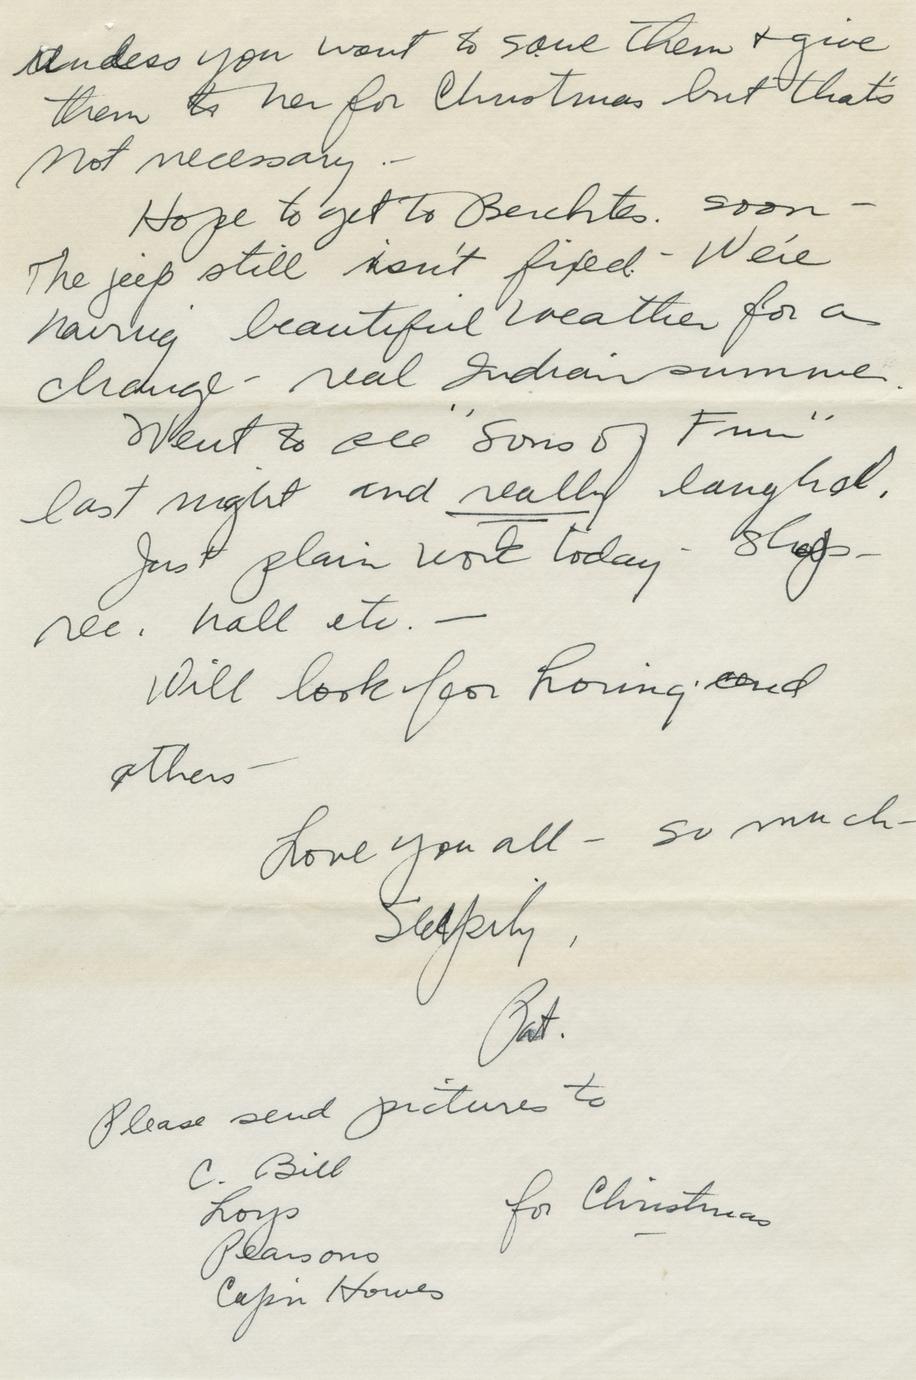 unless you want to save them & give
them to her for Christmas but that's
not necessary. —
Hope to get to Berchtes. soon —
The jeep still isn't fixed - We're
having beautiful weather for a
change - real Indian summer.
Went to see "Sons of Fun"
last night and really laughed.
Just plain work today -
rec. hall etc. —
Will look for Loring and
others —
Love you all — so much —
Sleepily,
Pat.
Please send pictures to
C. Bill
Loys
for Christmas
Pearsons
Cap'n Howes